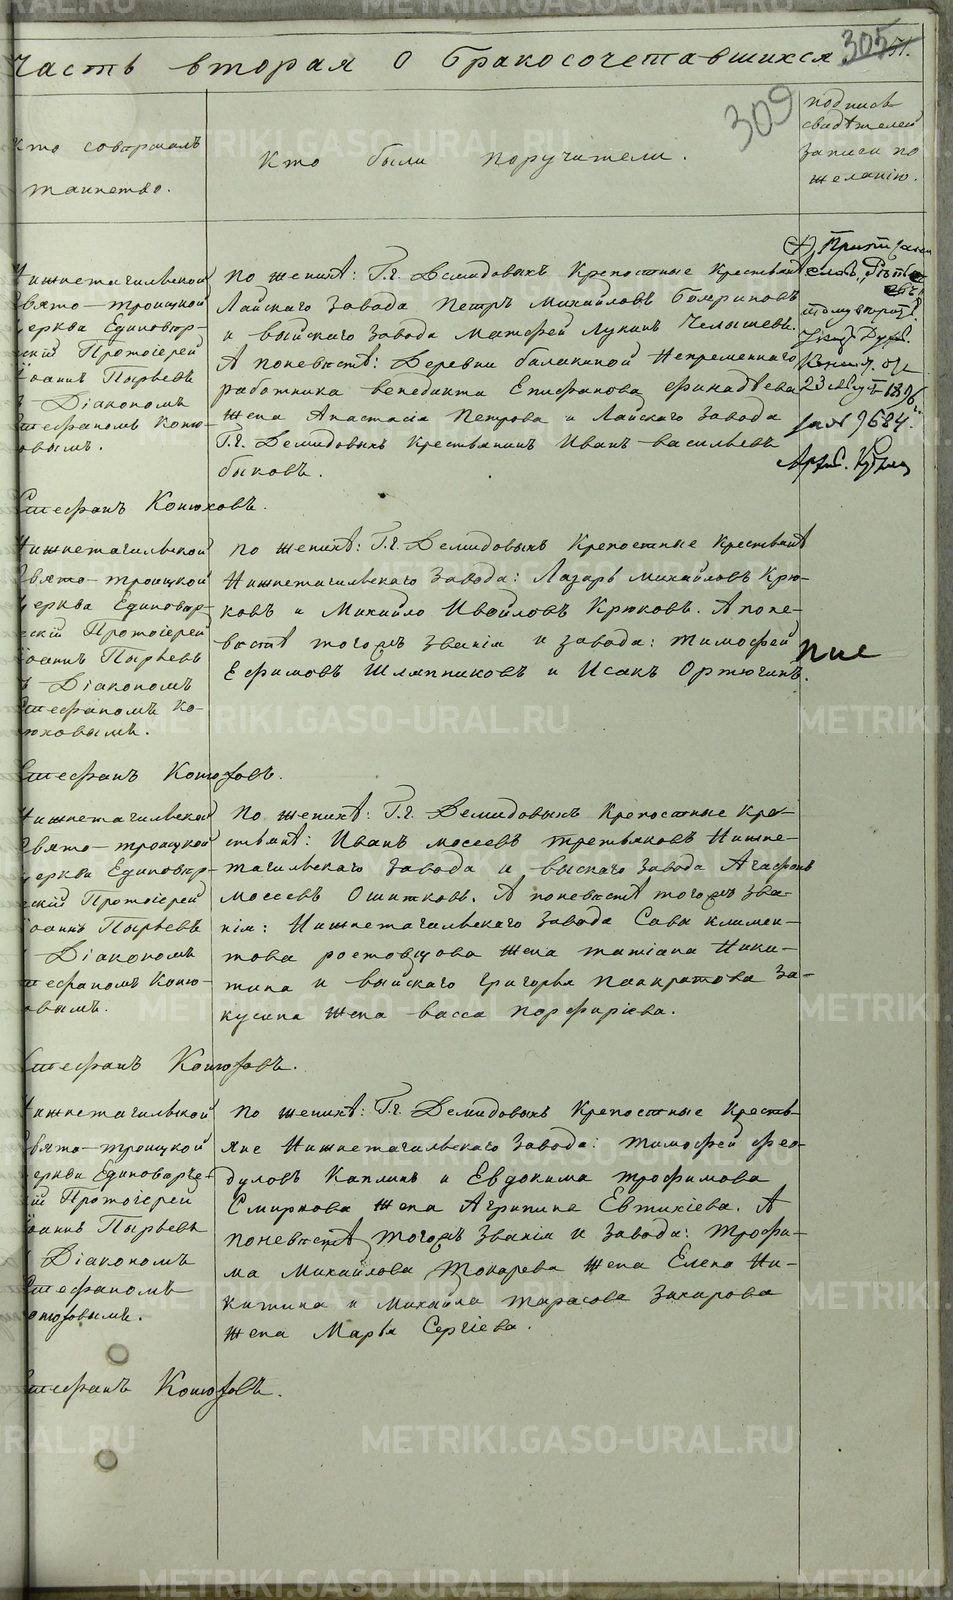 Часть вторая о бракосочетавшихся
305
309
кто совершалъ
таинство.
Кто были поручители.
подпись
свидѣтелей
записи по
желанію.
Нижнетагильской
Свято-троицкой
церкви Единовѣр-
ской Протоіерей
Іоаннъ Пырьевъ
съ Діакономъ
Стефаномъ Коню-
ховымъ.
По женихѣ: Г.г. Демидовыхъ Крепостные Крестьянѣ
Лайскаго завода Петръ Михайловъ Бояриновъ
и выйскаго завода Матфей Лукинъ Челышевъ.
А поневѣстѣ: Деревни балакиной Непременнаго
работника венедикта Епифанова
жена Анастасія Петрова и Лайскаго завода
Г.г. Демидовыхъ Крестьянинъ Иванъ васильевъ
быковъ.
23 Авгу
за № 9684.
Стефанъ Конюховъ.
Нижнетагильской
Свято-троицкой
Церкви Единовѣр-
ской Протоіерей
Іоаннъ Пырьевъ
съ Діакономъ
Стефаномъ Ко-
нюховымъ.
По женихѣ: Г.г. Демидовыхъ Крепостные Крестьянѣ
Нижнетагильскаго завода: Лазарь михайловъ Крю-
ковъ и Михайло Ивойловъ Крюковъ. А поне-
вѣстѣ тогожъ званія и завода: тимофей
Ефимовъ Шляпниковъ и Исакъ Ортюгинъ.
Стефанъ Конюховъ.
Нижнетагильской
Свято-троицкой
церкви Единовѣр-
ской Протоіерей
Іоаннъ Пырьевъ
Діакономъ
Стефаномъ Коню-
ховымъ.
По женихѣ: Г.г. Демидовыхъ Крепостные Кре-
стьянѣ: Иванъ мосеевъ третьяковъ Нижне-
тагильскаго завода и выскаго завода Агафонъ
мосеевъ Ошитковъ. А поневѣстѣ тогожъ зва-
нія: Нижнетагильскаго завода Савы климен-
това ростовцова жена татіана Ники-
тина и выйскаго григорья панкратова За-
кусина жена васса порфиріева.
Стефанъ Конюховъ.
Нижнетагильской
Свято-троицкой
церкви Единоверче-
ской Протоіерей
Іоаннъ Пырьевъ
Діакономъ
Стефаномъ
Конюховымъ.
По женихѣ: Г.г. Демидовыхъ Крепостные Кресть-
яне Нижнетагильскаго завода: тимофей фео-
дуловъ Каплинъ и Евдокима трофимова
Смирнова жена Агрипине Евтихіева. А
поневѣстѣ тогожъ званія и завода: трофи-
ма Михайлова Токарева жена Елена Ни-
китина и михайла тарасова Захарова
жена Марья Сергіева.
Стефанъ Конюховъ.
METRIKI.GASO-URAL.RU